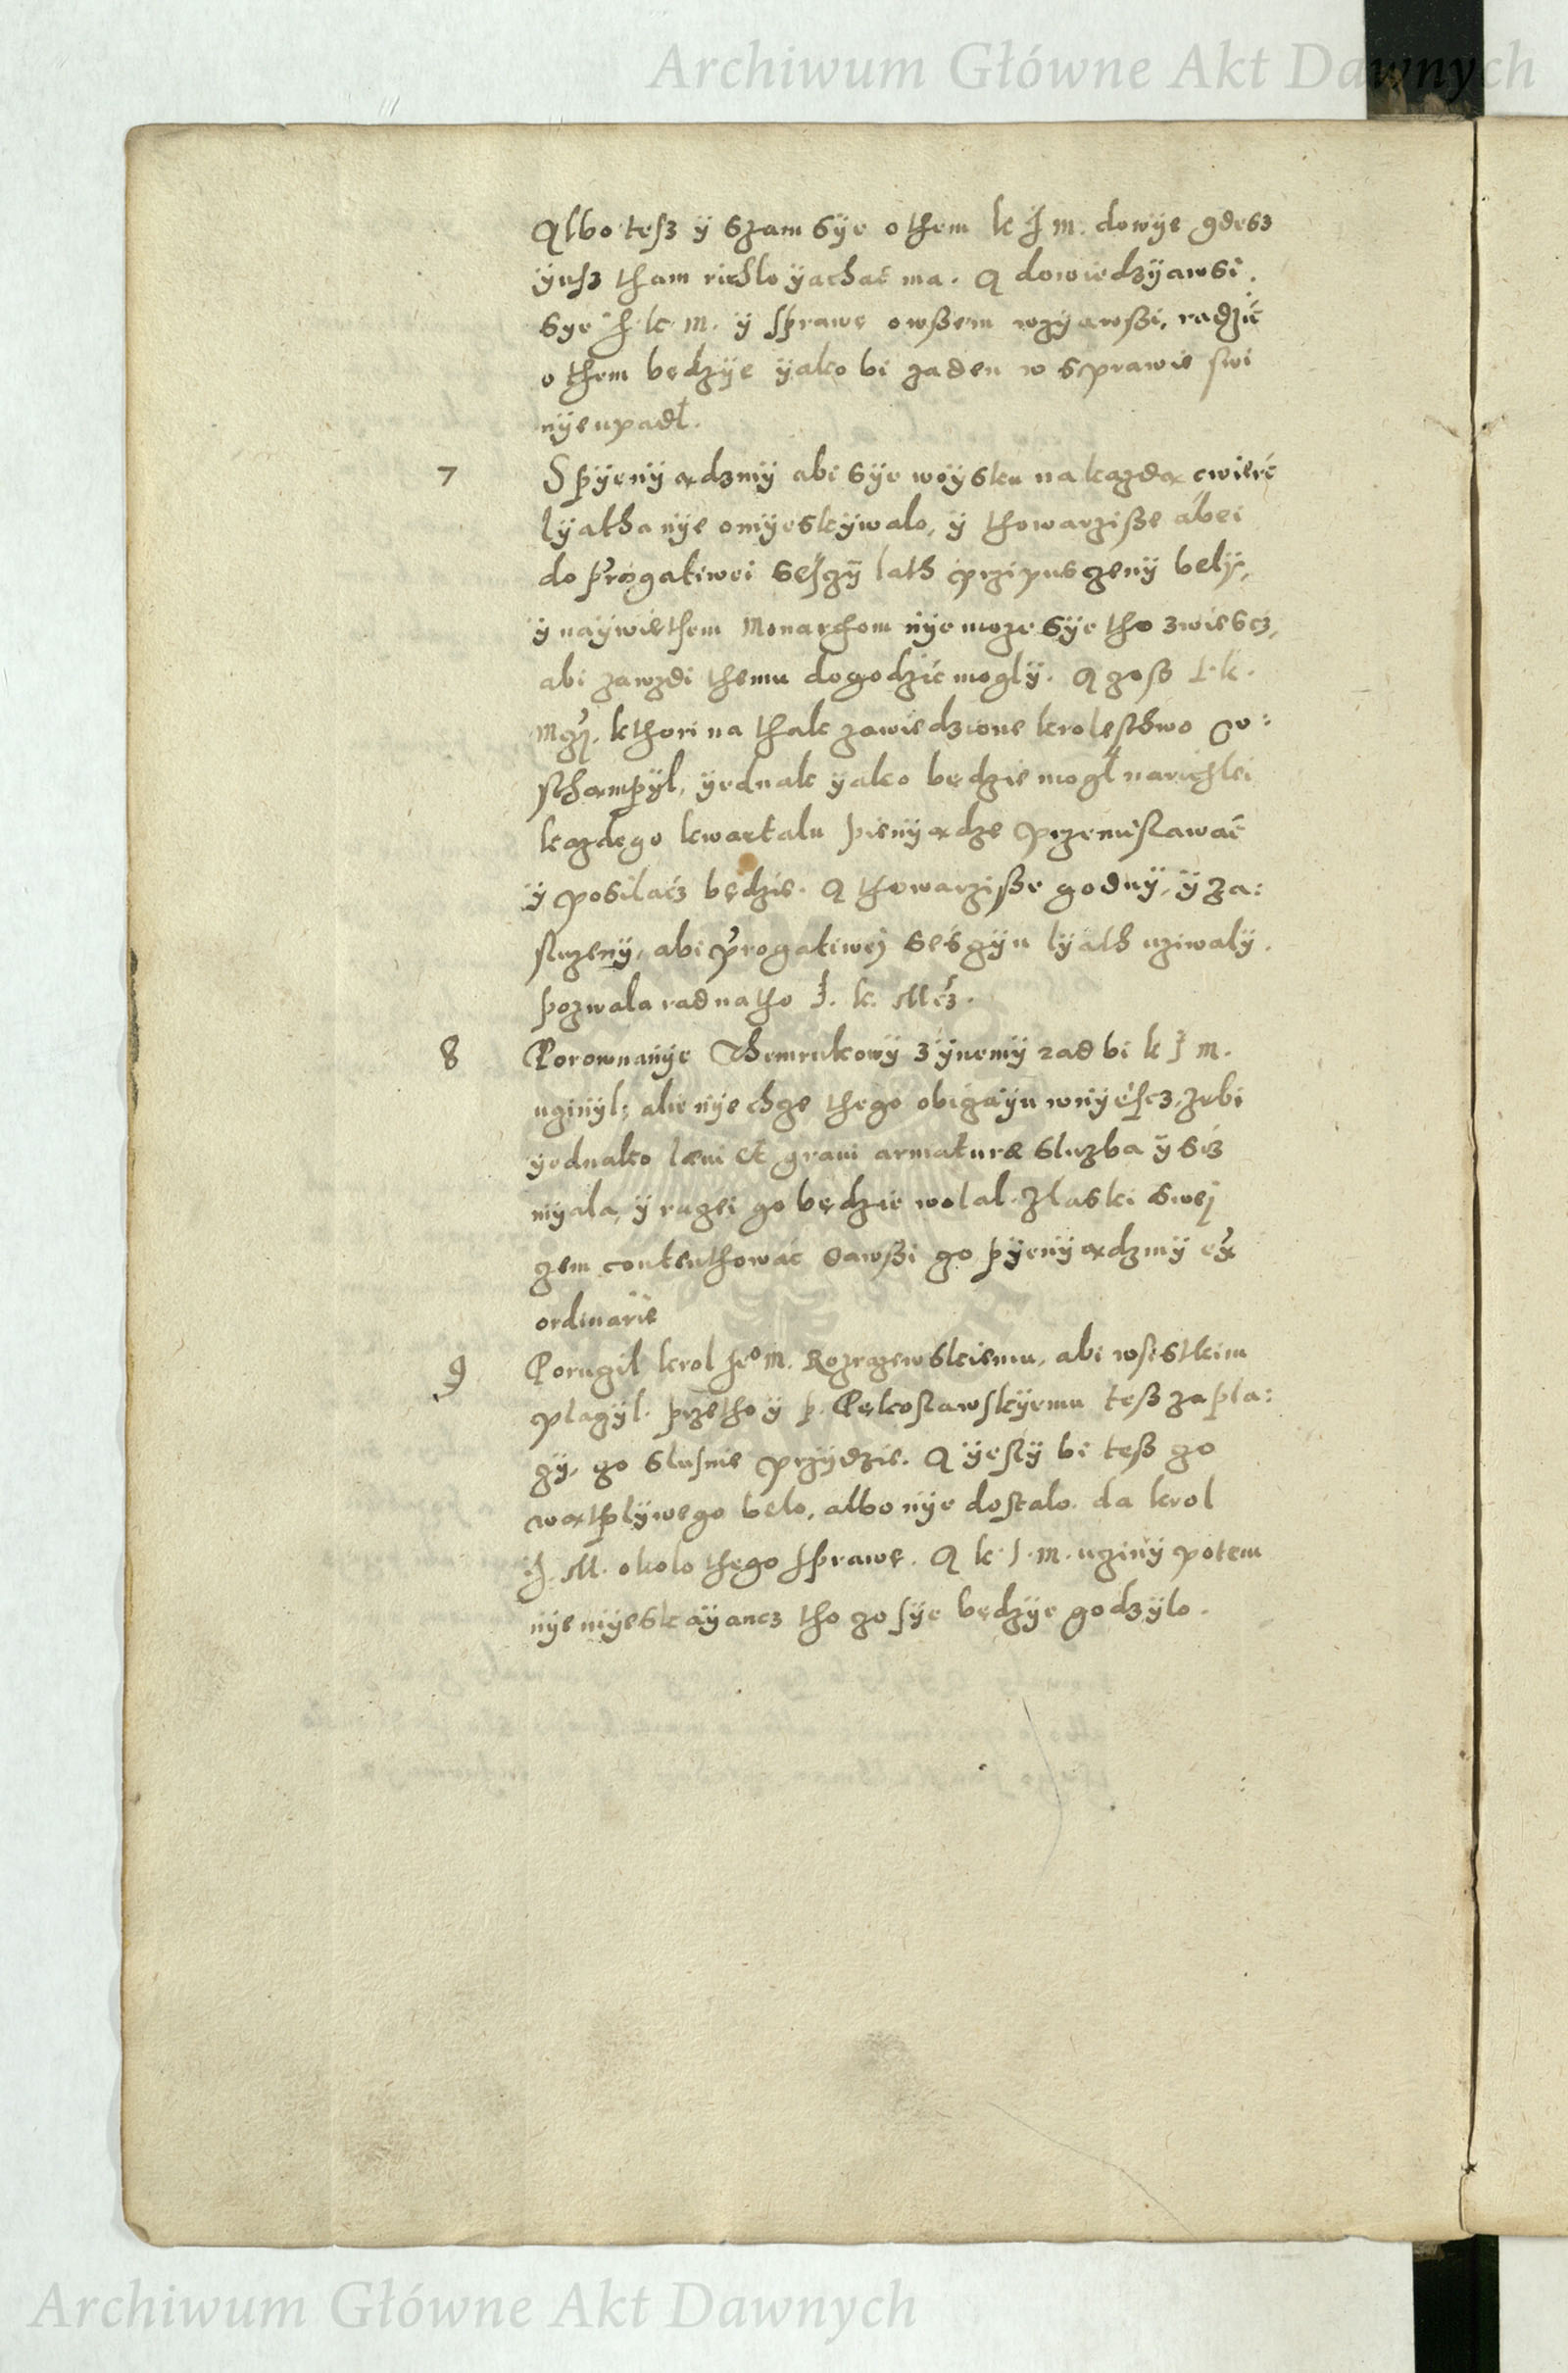 Archiwum Główne Akt Dawnych
Albo teſz ÿ szam sÿe o them k J M. dowÿe gdesz
ÿuſz tham richlo ÿachać ma. A dowiedzÿawsi.
sye J. k. M. ÿ ſprawę owßem wzÿąwßi, radzić
o them będzÿe ÿako bi zaden w sprawie swi
nÿe upadł.
7 S pÿenÿądzmÿ abi sÿe woÿsku na kazdą cwierć
lÿatha nÿe omÿeskÿwalo, ÿ thowarziße abei
do prrogatiwei seszÿ lath przipusczenÿ belÿ,
ÿ naÿwiethem Monarchom nÿe moze sÿe tho zwiescz,
abi zawzdi themu dogodzić moglÿ. A zoß J. k.
Mcz. kthori na thak zawiedzione kroleſthwo w:
ſthąmpÿl, ÿednak ÿako będzie mogł narichlei
kazdego kwartalu pienÿądze przemiſlawać
ÿ posilacz będzie. A thowarziße godnÿ, ÿ za:
ſluzenÿ, abi prrogatiwej sesczÿu lÿath uziwalÿ.
pozwala rad na tho J. k. Mcz.
8 Porownanÿe Themrukowÿ z ÿnemÿ rad bi k J M.
uczinÿl: ale nÿe chce thego obiczaÿu wnÿeſcz, zebi
ÿednako læui et graui armaturæ sluzba ÿ sicz
mÿala, ÿ raczei go będzie wolal z laski swej
czem contenthowac dawßi go pÿenÿądzmÿ ex
ordinarie
9 Poruczil krol Jeo M. Rozrazewskiemu, abi wsistkim
placzÿl. przetho ÿ p. Pękoſlawſkÿemu teß zapla:
czÿ, zo sluſnie przÿdzie. A ÿeſlÿ bi teß zo
wąthplÿwego belo, albo nÿe doſtalo. da krol
J. M. okolo thego ſprawę. A k. J. M. uczinÿ potem
nÿe mÿeskaÿancz tho zo ſÿe będzÿe godzÿlo.
Archiwum Główne Akt Dawnych